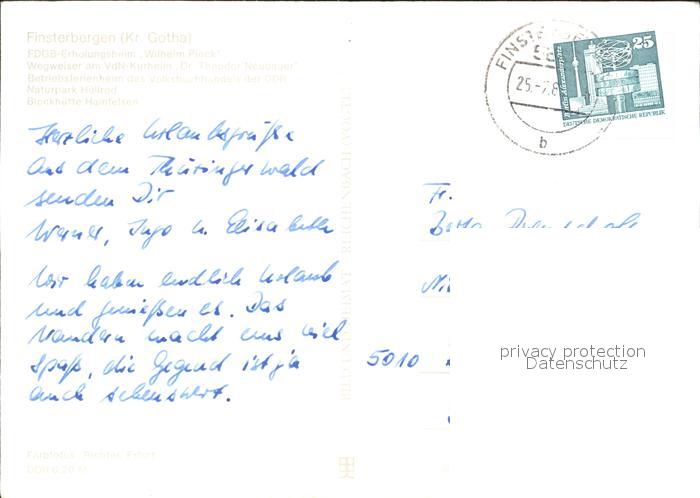 Finsterbergen (Kr. Gotha)
FDGB-Erholungsheim „Wilhelm Pieck"
Wegweiser am VdN-Kurheim „Dr. Theodor Neubauer"
Betriebsferienheim des Volksbuchhandels der DDR
Naturpark Hüllrod
Blockhütte Hainfelsen
Herzliche Urlaubsgrüße
aus dem Thüringer wald
senden Dir
Werner, Ingo u. Elisabeth
Wir haben endlich Urlaub
und genießen es. Das
Wandern macht uns viel
Spaß, die Gegend ist ja
auch sehenswert.
Farbfotos: Richter, Erfurt
REICHENBACH
25
Berlin, Alexanderplatz
DEUTSCHE DEMOKRATISCHE REPUBLIK
25.-7.8
b
Fr.
5010
privacy protection
Datenschutz